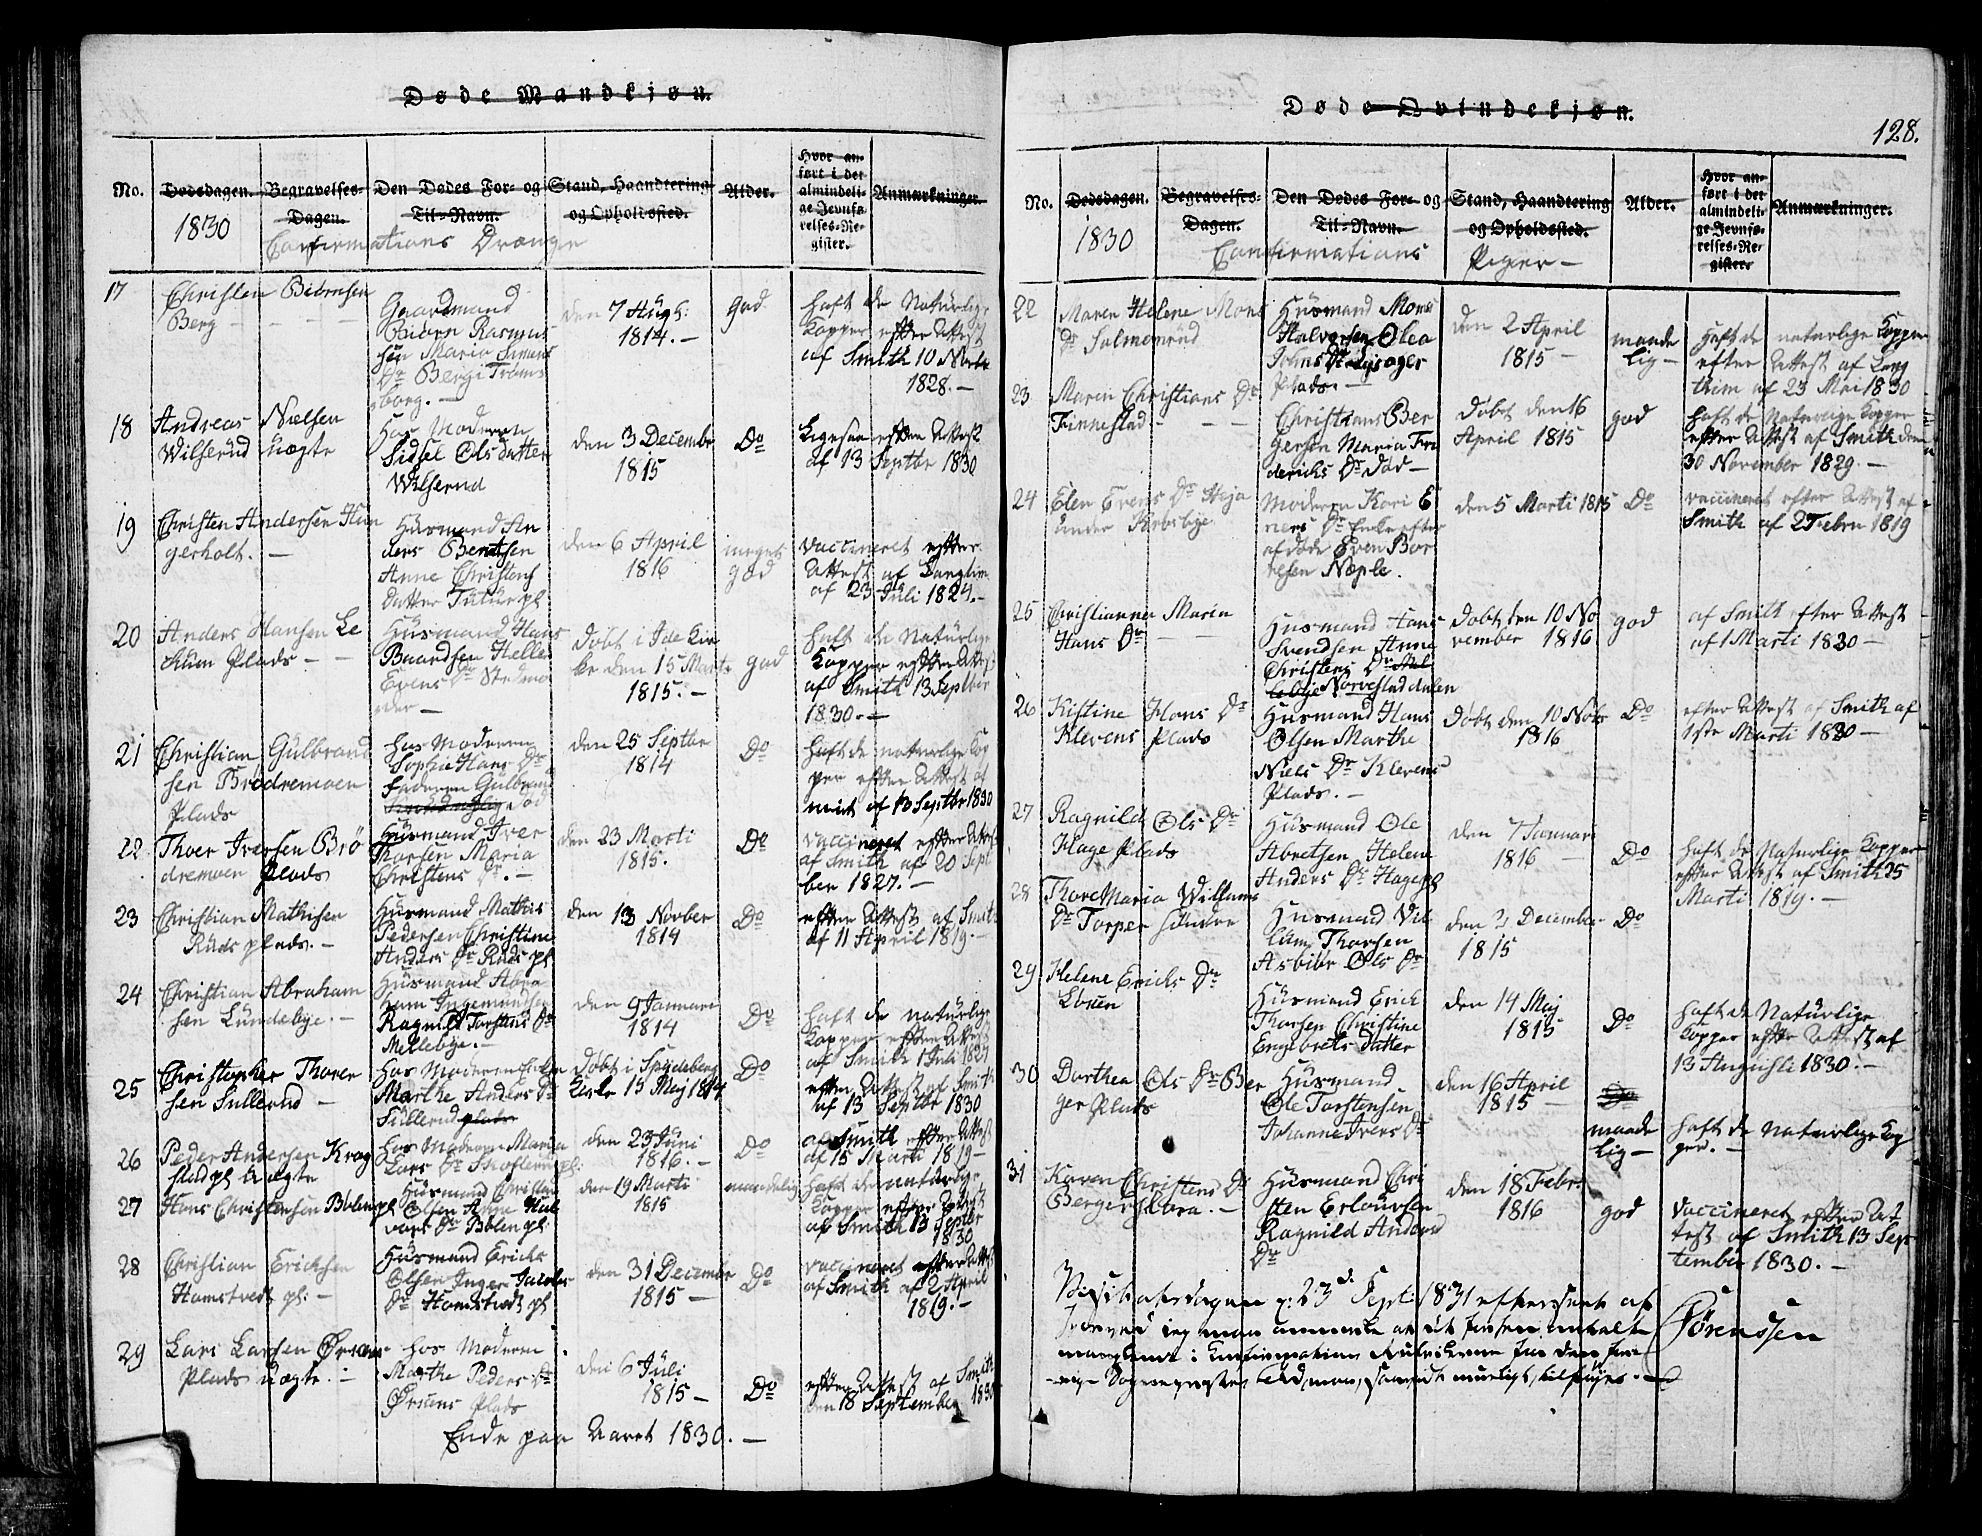 Døde Mandkjøn.
No.
Dødsdagen.
1830
Begravelses-
Dagen.
Den Dødes For- og
Til-Navn.
Stand, Haandtering
og Opholdssted.
Alder.
Hvor an-
ført i det
almindeli-
ge Jevnfø-
relses-Re-
gister.
Anmærkninger.
Confirmations Drænge
17
Christen Biörnsen
Berg - - - -
Gaardmand
Baiörn Rasmus
sen Maria Simens
Dr Berg i Trøms
borg. -
den 7 Augs:
1814. -
god
haft de Natürlige
Kopper efter Attest
af Smith 10 Novbr
1828. -
18
Andreas Nielsen
Wilserud Uægte
Hos Moderen
Sidsel Olsdatter
Wilserud
den 3 December
1815
Do
Ligesaa efter Attest
af 13 Septbr 1830
19
Christen Andersen Hun
gerholt. -
Hüsmand An
ders Berntsen
Anne Christens
datter Tuturpl
den 6 April
1816
meget
god
vaccineret efter
Attest af Langhim
af 23 Juli 1824. -
20
Anders Hansen Le
kum Plads - -
Hüsmand Hans
Baardsen Helle
Evens Dr
döbt i Ide Kir
ke den 15 Marts
1815. -
god
haft de Natürlige
Kopper efter Attest
af Smith 13 Septber
1830. -
21
Christian Gülbrand
sen Brödremoen
Plads
hos Moderen
Sophie Hans Dr
Faderen Gülbrand
död
den 25 Septbr
1814
Do
Haft de naturlige Kop
per efter Attest af
Smit af 13 Septbr 1830
22
Thoer Iversen Brö
dremoen Plads
Hüsmand Iver
Thorsen Maria
Christens Dr. -
den 23 Marti
1815.
Do
vaccineret efter Attest
af Smith af 20 Sept
ber 1827. -
23
Christian Mathisen
Ruds plads. -
Hüsmand Mathis
Pedersen Christine
Anders Dr Ruds pl
den 13 Novber
1814
Do
efter Attest af Smith
af 11 April 1819. -
24
Christian Abraham
sen Lündebye. -
Hüsmand Abra
ham Ingemundsen
Ragnild Torstens Dr
Mellebye. -
den 9 Januari
1814
Do
haft de naturlige
Kopper efter Attest
af Smith 1 Juli 1827
25
Christopher Thorer
sen Sullerud -
hos Moderen Enken
Marthe Anders Dr
Süllerud plads
Döbt i Spydeberg
Kirke 15 Maj 1814
Do
efter Attest af Smith
af 13 Septbr 1830
26
Peder Andersen Krog
stad pl. Uægte
hos Moderen Maria
Lars Dr
den 23 Jüni
1816. -
Do
af Smith efter Attest
af 15 Marti 1819 -
27
Hans Christensen Bölenpl
Hüsmand Christen
Olsen Anne Hal
vors Dr Bölen pl.
den 19 Marti
1815
maadelig
haft de naturlige
Kopper efter Attest
af Smith 13 Septbr
1830
28
Christian Ericksen
Hamstvedt pl. -
Hüsmand Erick
Olsen Inger Jacobs
Dr Hamstvedt pl
den 31 December
1815 -
Do
vaccineret efter Attest
af Smith af 2 April
1819. -
29
Lars Larsen Örsten
Plads uægte. -
hos Moderen
Marthe Peders Dr
Örstens Plads
den 6 Jüli
1815 -
Do
efter Attest af Smith
den 18 September 1830
Ende paa Aaret 1830. -
Døde Qvindekjøn.
128.
No.
Dødsdagen.
1830
Begravelses-
Dagen.
Den Dødes For- og
Til-Navn.
Stand, Haandtering
og Opholdssted.
Alder.
Hvor an-
ført i det
almindeli-
ge Jevnfø-
relses-Re-
gister.
Anmærkninger.
Confirmations Piger -
22
Maren Helene Mons
Dr Salmonrud
Hüsmand Mons
Halvorsen Olea
Johns Dr
Plads. -
den 2 April
1815 -
maade
lig -
Haft de naturlige Kopper
efter Attest af Lang
him af 23 Mai 1830
23
Maren Christians Dr
Finnestad - - -
Christians Ber
gersen Maria Fri
derichs Dr död -
Döbt den 16
April 1815
god
haft de Naturlige Kopper
efter Attest af Smith den
30 November 1829. -
24
Elen Evens Dr
under
Moderen Kari E
ners Dr Enke efter
afdöde Even Bor
resen Næple.
den 5 Marti 1815
Do
vaccineret efter Attest af
Smith af 2 Febru 1819
25
Christianne Maria
Hans Dr - -
Hüsmand Hans
Svendsen Anne
Christens Dr
Norvestad dalen
Döbt den 10 No
vember 1816
god
af Smith efter Attest
af 1 Marti 1830 -
26
Kistine Hans Dr
Klevens Plads
Hüsmand Hans
Olsen Marthe
Niels Dr Klevens
Plads. -
Döbt den 10 Novbr
1816
Do
efter Attest af Smith af
1ste Marti 1830 -
27
Ragnild Ols Dr
Hage Plads
Hüsmand Ole
Abretsen Helene
Anders Dr Hagepl
den 7 Januar
1816 -
Do
haft de Naturlige Kopper
efter Attest af Smith 25
Marti 1819. -
28
Thore Maria Willums
Dr Torper söndre
Hüsmand Vil
lum Thorsen
Asbiör Ols Dr
den 21 December
1815
Do
29
Helene Ericks Dr
Löken
Hüsmand Erick
Thorsen Christine
Engebrets datter
den 14 Maj
1815
Do
haft de Naturlige
Kopper efter Attest af
13 Auguste 1830. -
30
Dorthea Ols Dr Ber
ger Plads
Hüsmand
Ole Torstensen
Johanne Ivers Dr
den 16 April
1815
Do
maade
lig -
haft de naturlige Kop
per. -
31
Karen Christens Dr
Berger
Hüsmand Chri
sten Erlaursen
Ragnild Anders
Dr
den 18 Febr:
1816
god
vaccineret efter At
test af Smith 13 Sep
tember 1830. -
23d Sept: 1831 efterseet af
Sørenssen